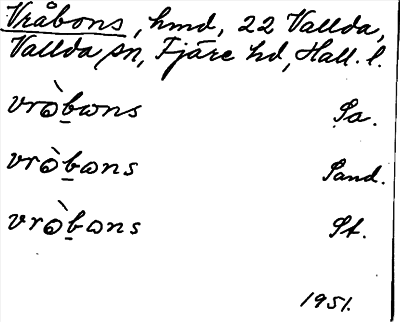 Vråbons, hmd, 22 Vallda,
Vallda sn, Fjäre hd, Hall. l.
vrò̀bωns Sa.
vrò̀bωns Sand.
vrò̀bωns St.
1951.